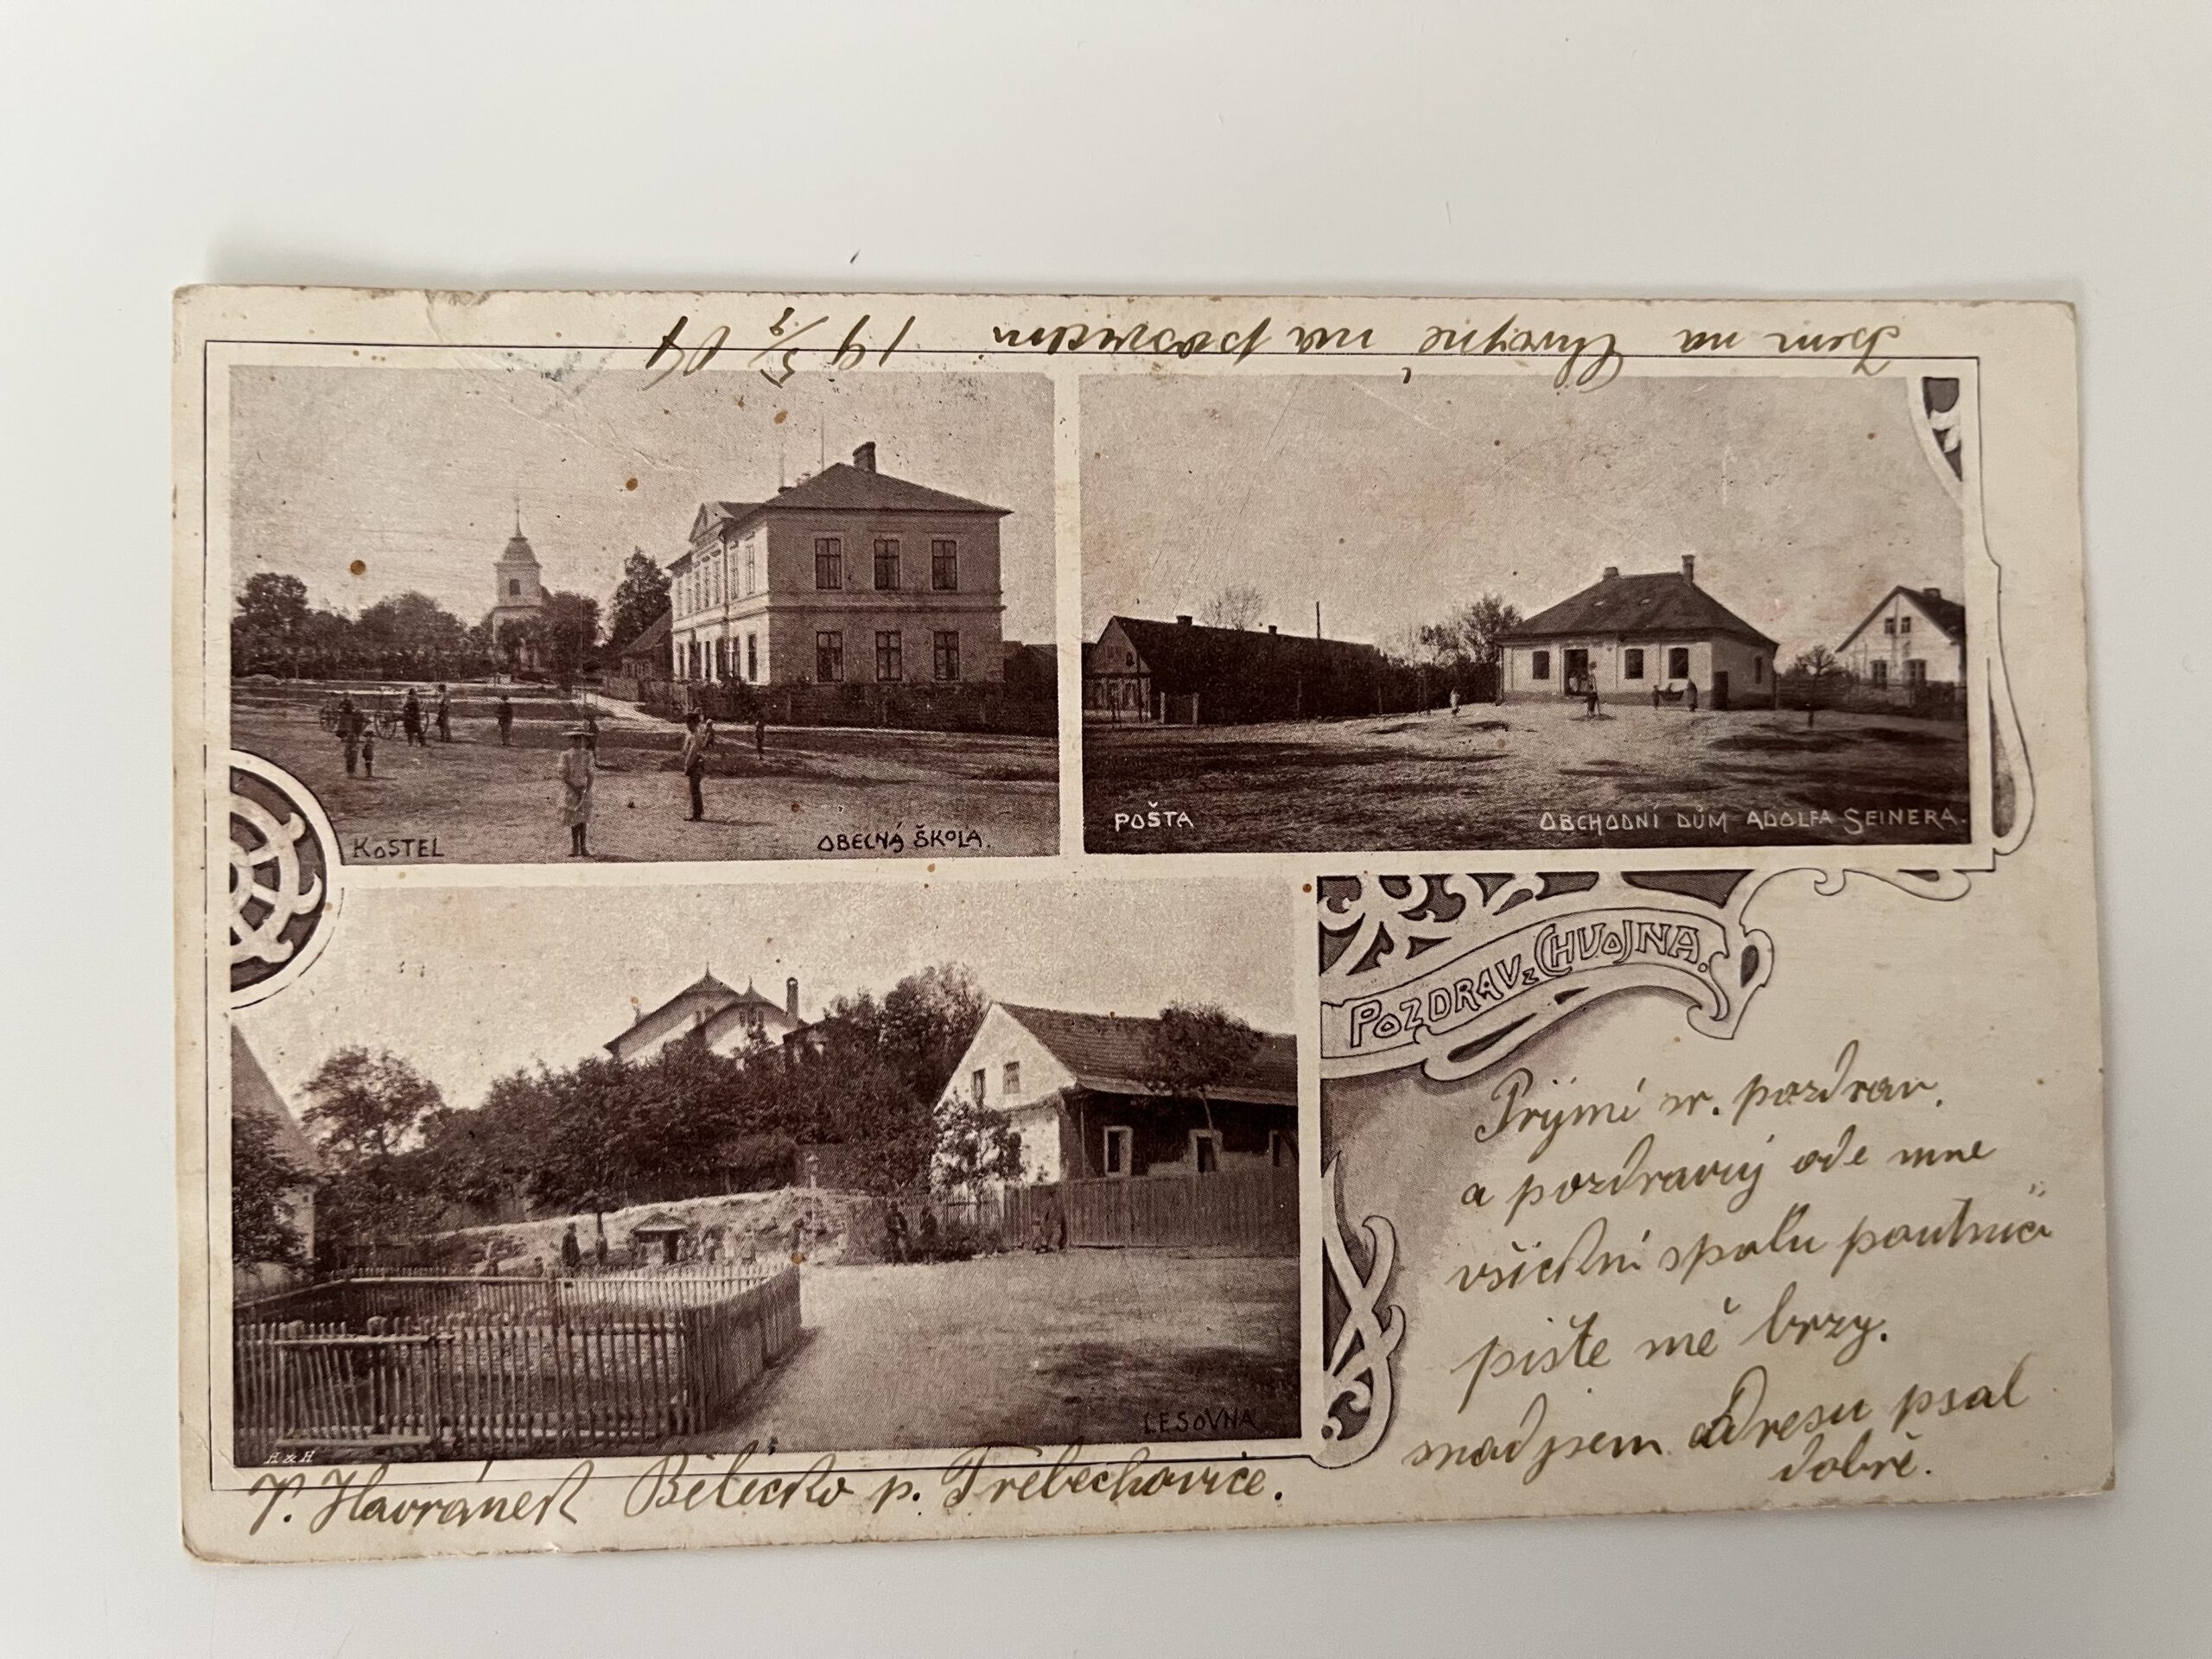 Jsem na Chvojně na posvícen 19 5/9 04
KOSTEL
OBECNÁ ŠKOLA.
POŠTA
OBCHODNÍ DŮM ADOLFA SEINERA.
POZDRAV z CHVOJNA.
Prijmi sr. pozdrav.
a pozdravuj ode mne
všickni spolu poutnici
pište mě brzy.
snad jsem adresu psal
dobře.
LESOVNA
H & H
V. Havránek Bělečko p. Třebechovice.